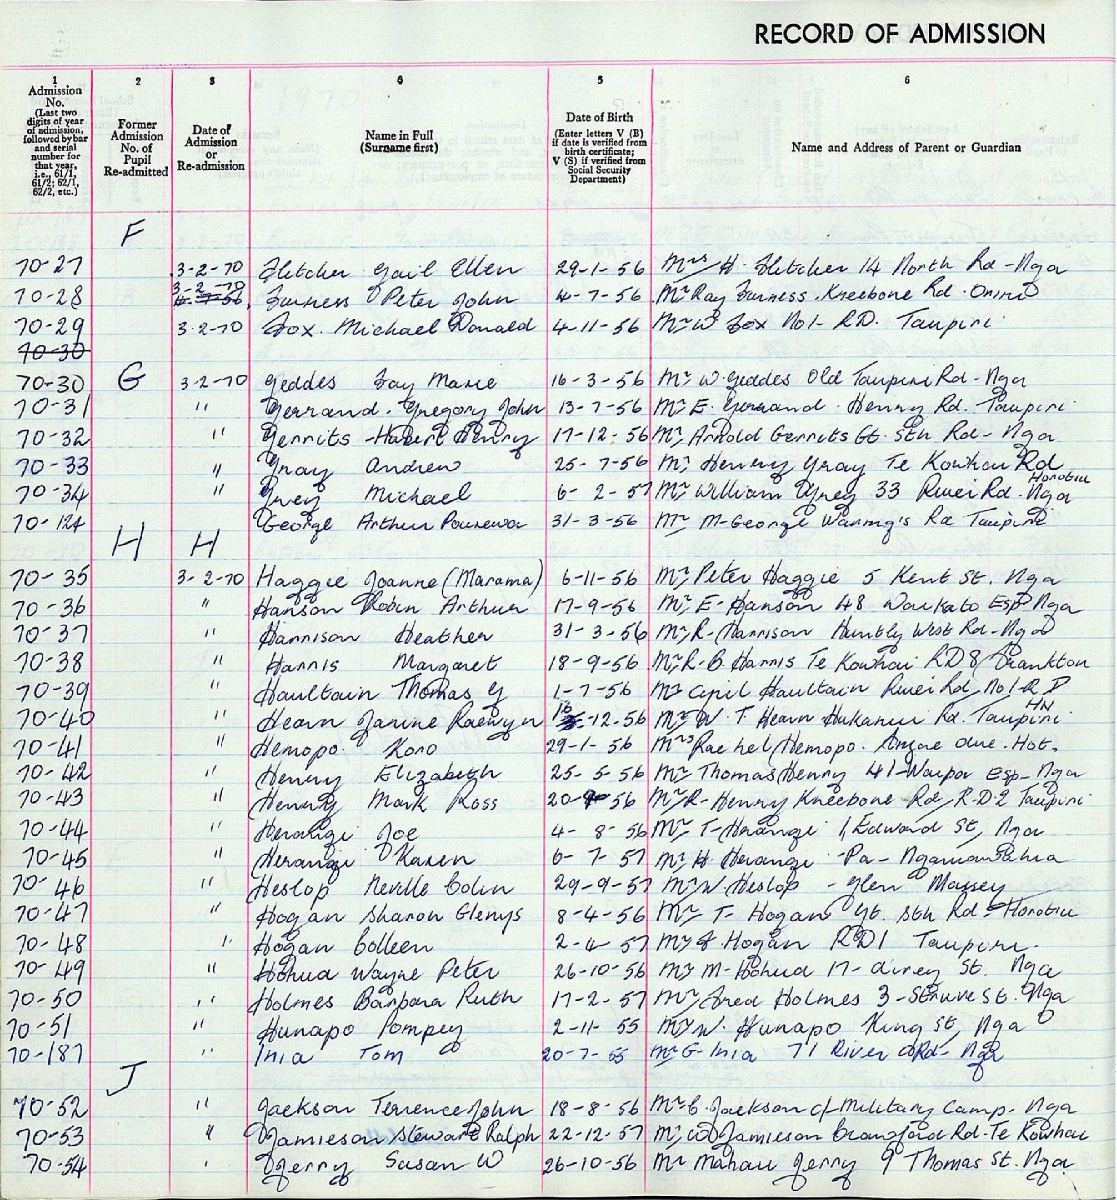 RECORD OF ADMISSION
1 2 3 4 5 6
Admission No. (Last two digits of year of admission, followed by bar and serial number for that year, i.e., 61/1, 61/2; 62/1, 62/2, etc.)
Former Admission No. of Pupil Re-admitted
Date of Admission or Re-admission
Name in Full (Surname first)
Date of Birth (Enter letters V (B) if date is verified from birth certificate; V (S) if verified from Social Security Department)
Name and Address of Parent or Guardian
F
70-27 3-2-70 Fletcher Gail Ellen 29-1-56 Mrs H. Fletcher 14 North Rd - Nga
70-28 3-2-70 Furness Peter John 4-7-56 Mr Ray Furness. Kneebone Rd.
70-29 3-2-70 Fox. Michael Donald 4-11-56 Mr W Fox No1- RD. Taupiri
70-30
70-30 G 3-2-70 Geddes Fay Marie 16-3-56 Mr W. Geddes Old Taupiri Rd - Nga
70-31 " Gerrand. Gregory John 13-7-56 Mr E. Gerrand. Henry Rd. Taupiri
70-32 " Gerrits Henry 17-12-56 Mr Arnold Gerrits Gt. Sth Rd - Nga
70-33 " Gray Andrew 25-7-56 Mr Henry Gray Te Kowhai Rd Horotiu
70-34 " Grey Michael 6-2-57 Mr William Grey 33 River Rd. Nga
70-124 George Arthur 31-3-56 Mr M-George Waring's Rd Taupiri
H H
70-35 3-2-70 Haggie Joanne (Marama) 6-11-56 Mr Peter Haggie 5 Kent St. Nga
70-36 " Hanson Robin Arthur 17-9-56 Mr E- Hanson 48 Waikato Esp-Nga
70-37 " Harrison Heather 31-3-56 Mr R- Harrison Huntly West Rd-Nga
70-38 " Harris Margaret 18-9-56 Mr R-B Harris Te Kowhai RD8 Frankton
70-39 " Haultain Thomas G 1-7-56 Mr Haultain River Rd, No1-RD HN
70-40 " Hearn Janine Raewyn 16-12-56 Mr W. T Hearn Hukanui Rd. Taupiri
70-41 " Hemopo. Koro 29-1-56 Mrs Rachel Hemopo. Ave. Hot.
70-42 " Henry Elizabeth 25-5-56 Mr Thomas Henry 41-Waipa Esp-Nga
70-43 " Henry Mark Ross 20-9-56 Mr R- Henry Kneebone Rd, R-D-2 Taupiri
70-44 " Herangi Joe 4-8-56 Mr T- Herangi 1 Edward St, Nga
70-45 " Herangi Karen 6-7-57 Mr H Herangi -Pa-
70-46 " Heslop Neville Colin 29-9-57 Mr W. Heslop - Glen Massey
70-47 " Hogan Sharon Glenys 8-4-56 Mr T- Hogan Gt. Sth Rd - Horotiu
70-48 " Hogan Colleen 2-4-57 Mr Hogan RD1 Taupiri-
70-49 " Hohua Wayne Peter 26-10-56 Mr M-Hohua 17- Airey St. Nga
70-50 " Holmes Barbara Ruth 17-2-57 Mr Fred Holmes 3-Struve St. Nga
70-51 " Hunapo Pompey 2-11-55 Mr W. Hunapo King St, Nga
70-187 " Inia Tom 20-7-55 Mr G- Inia 71 River Rd- Nga
J
70-52 " Jackson Terrence John 18-8-56 Mr C. Jackson c/- Military Camp- Nga
70-53 " Jamieson Steward Ralph 22-12-57 Mr W Jamieson Rd-Te Kowhai
70-54 " Jerry Susan W 26-10-56 Mr Mahau Jerry 9 Thomas St. Nga